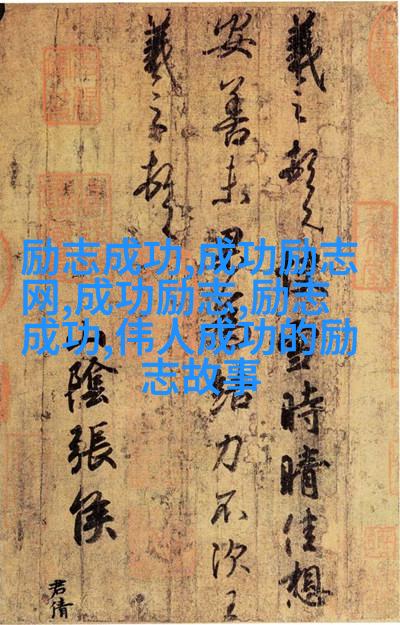 励志成功,成功励志
网,成功励志,励志
成功,伟人成功的励
志故事
羲之頓首快雪時晴佳想
安善未果為結力不次王
羲之頓首
山陰張侯
君倩